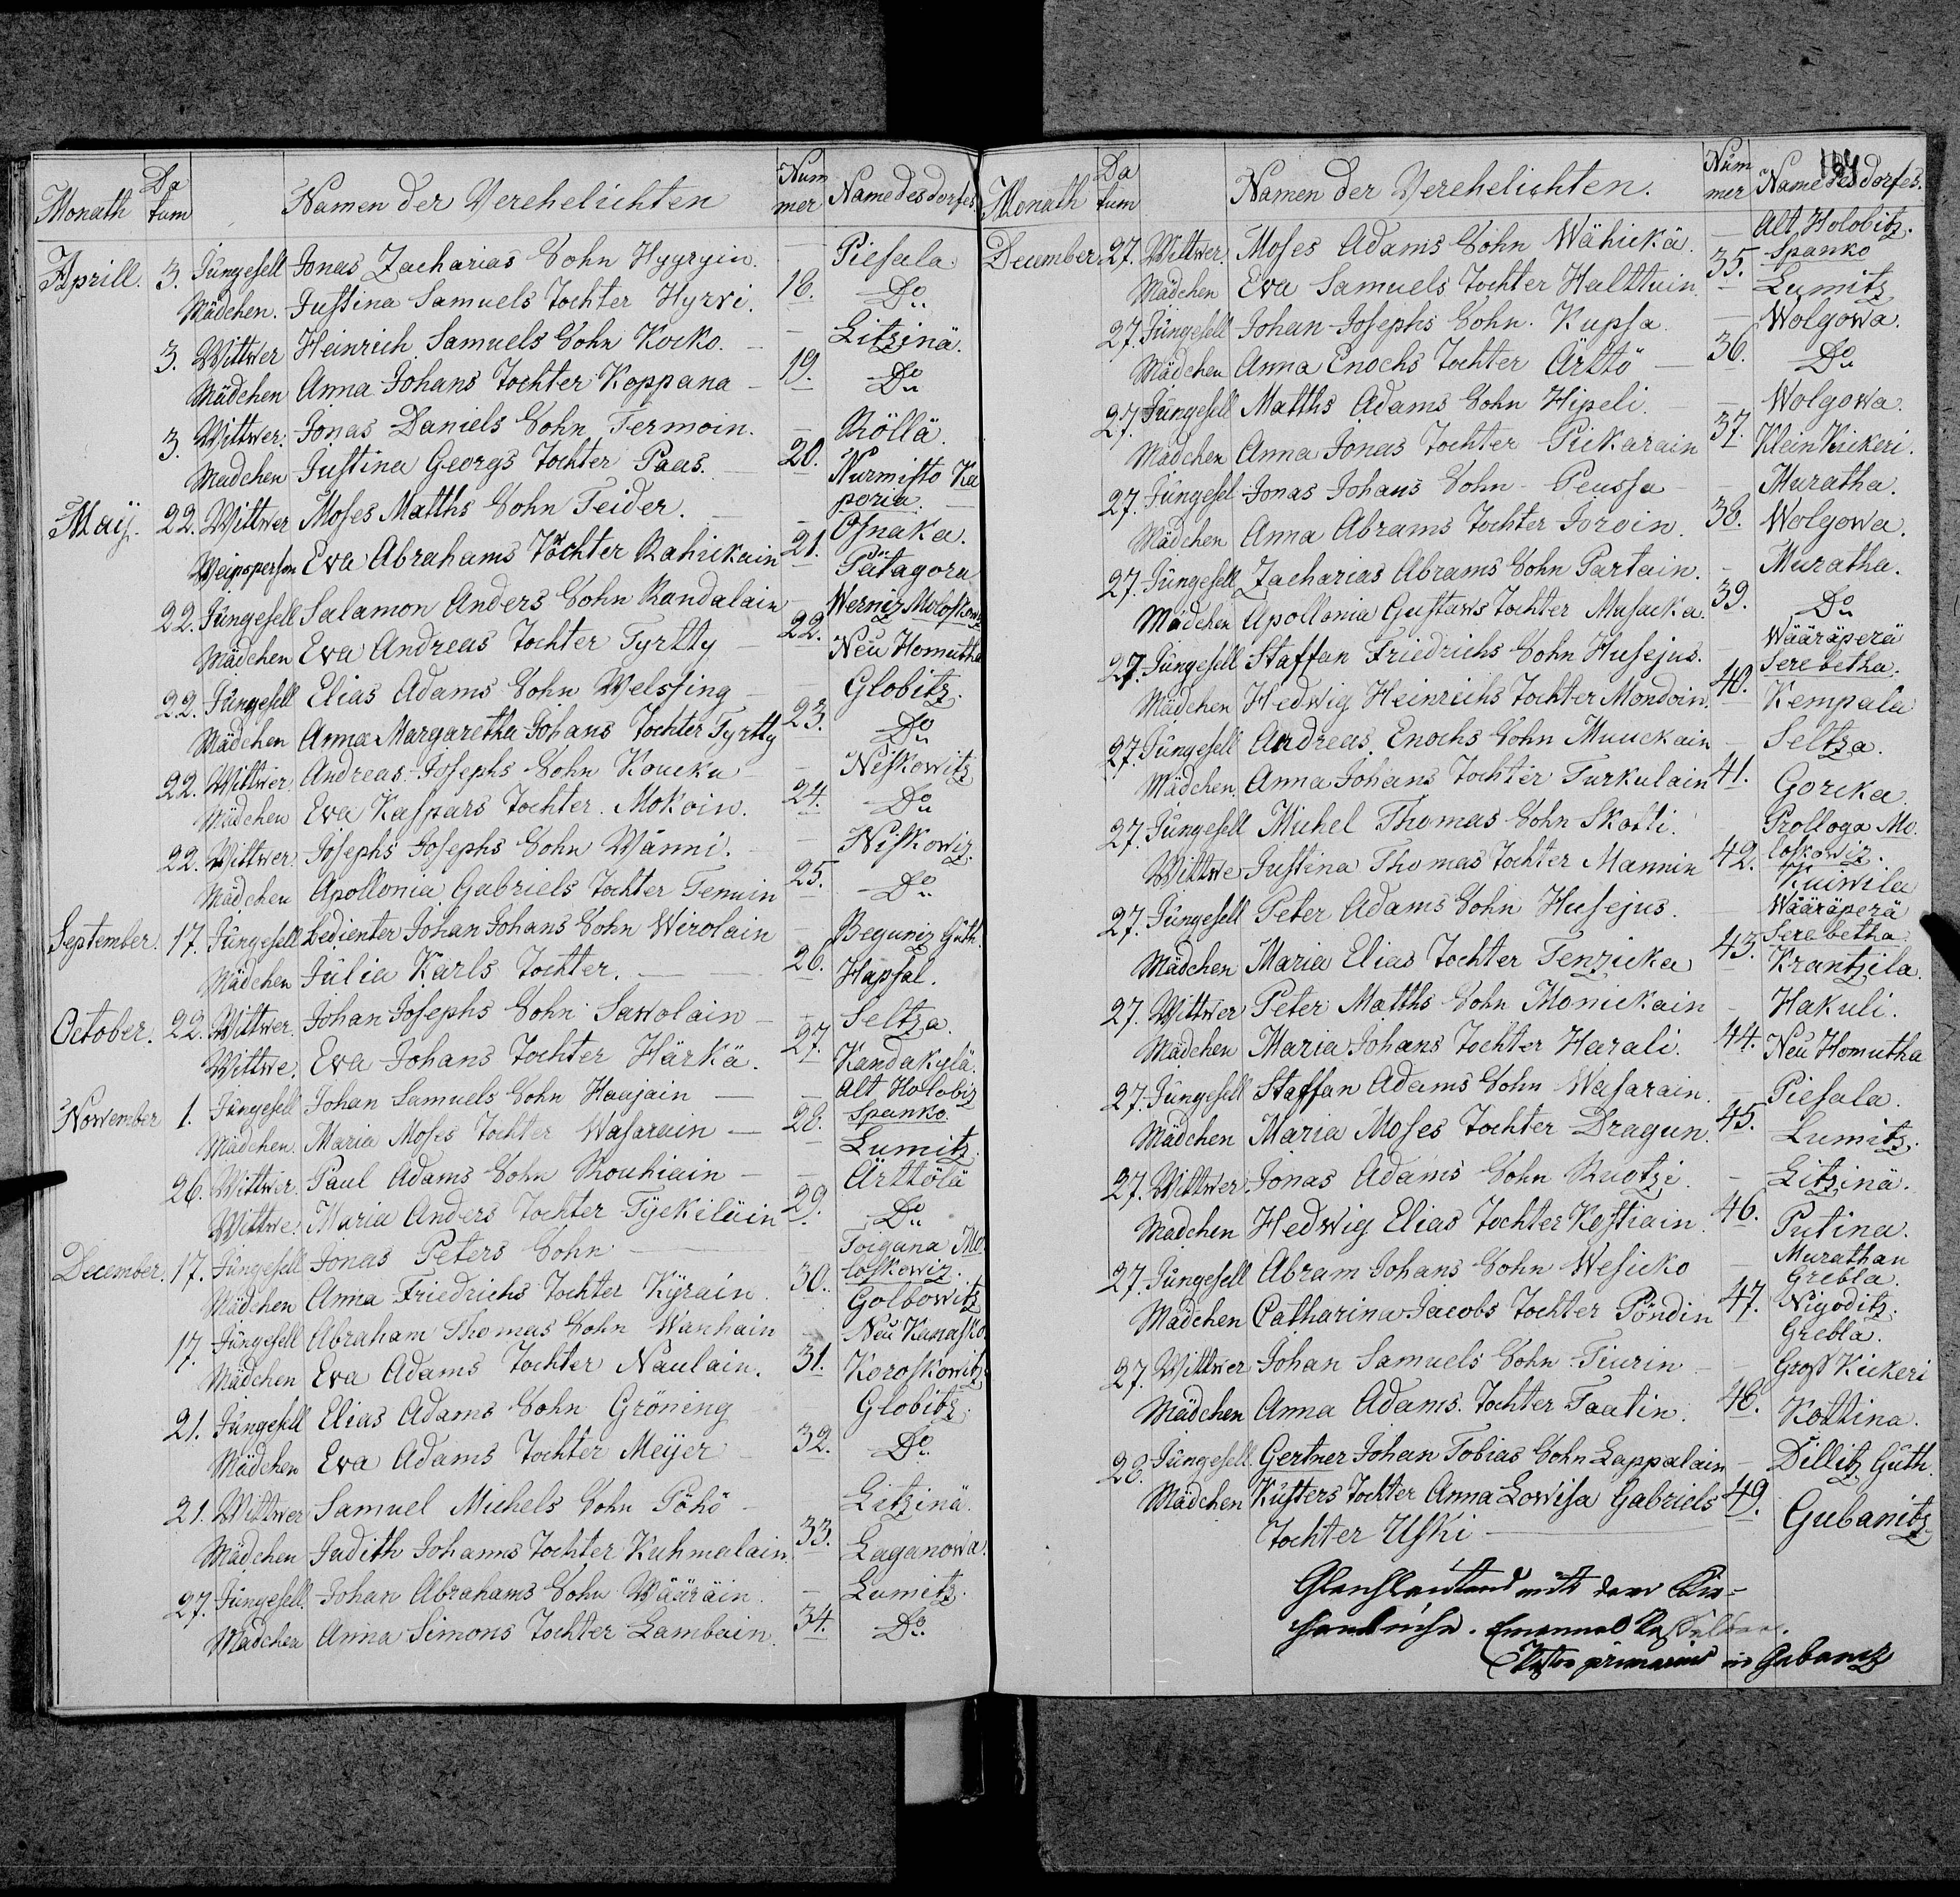 Monath Da tum Namen der Verehelichten Num mer Name des dorfes
Aprill. 3. Jüngesell Jonas Zacharias Sohn Hyyryin. — Piesala.
Mädchen. Justina Samuels Tochter Hyrvi. 18. Do
3. Wittwer Heinrich Samuels Sohn Kocko. — Litzinä.
Mädchen Anna Johans Tochter Koppana — 19. Do
3. Wittwer. Jonas Daniels Sohn Termoin. — Röllä.
Mädchen Justina Georgs Tochter Paas. — 20. Nurmisto Ka
poria.
May. 22. Wittwer Moses Matths Sohn Teider. — Osnaka.
Weipsperson Eva Abrahams Töchter Rahikain 21. Pätagora
22. Jüngesell Salamon Anders Sohn Randalain — Werniz Moloskowiz
Mädchen Eva Andreas Tochter Tyrtty — 22. Neu Homutha
22. Jüngesell Elias Adams Sohn Welssing — Globitz.
Mädchen Anna Margaretha Johans Tochter Tyrtty 23. Do
22. Wittwer. Andreas Josephs Sohn Koucku — Niskowitz
Mädchen Eva Kaspars Tochter Mokoin. 24. Do
22. Wittwer. Josephs Josephs Sohn Wänni. — Niskowiz.
Mädchen Apollonia Gabriels Tochter Tenuin 25. Do
September. 17. Jüngesell bedienter Johan Johans Sohn Wirolain — Beguniz Guth.
Mädchen Julia Karls Tochter. — 26. Hapsal.
October. 22. Wittwer. Johan Josephs Sohn Sawolain — Seltza.
Wittwe. Eva Johans Tochter Härkä. 27. Kandakylä.
November 1. Jüngesell Johan Samuels Sohn Haajain — Alt Holobiz
Spanko.
Mädchen. Maria Moses Tochter Wasarain — 28. Lumitz.
26. Wittwer. Paul Adams Sohn Rouhiain — Ärttölä
Wittwe. Maria Anders Tochter Tyckiläin 29. Do
December. 17. Jüngesell Jonas Peters Sohn — Toigana Mo
loskowiz.
Mädchen Anna Friedrichs Tochter Kyrain. 30. Golbowitz
17. Jüngesell Abraham Thomas Sohn Wanhain — Neu Kanasko.
Mädchen Eva Adams Tochter Naulain. 31. Koroskowitz.
21. Jüngesell Elias Adams Sohn Gröning Globitz.
Mädchen Eva Adams Tochter Meyer — 32. Do
21. Wittwer Samuel Michels Sohn Pöhö — Litzinä.
Mädchen Judith Johanns Tochter Kuhmalain. 33. Laganowa.
27. Jüngesell. Johan Abrahams Sohn Wääräin. — Lumitz.
Mädchen Anna Simons Tochter Lambain. 34. Do
184
Monath Da tum Namen der Verehelichten. Num mer Name des dorfes.
December 27. Wittwer. Moses Adams Sohn Wähickä. — Alt Holobitz.
Spanko
Mädchen Eva Samuels Tochter Halttuin. 35. Lumitz
27. Jüngesell Johan Josephs Sohn. Kupsa. — Wolgowa.
Mädchen Anna Enochs Tochter Ärttö — 36. Do
27. Jüngesell Matths Adams Sohn Hipeli. — Wolgowa.
Mädchen Anna Jonas Tochter Pickarain 37. Klein Kickeri.
27. Jüngesel Jonas Johans Sohn Peussa — Muratha.
Mädchen Anna Abrams Tochter Joroin. 38. Wolgowa.
27. Jüngesell Zacharias Abrams Sohn Partain. — Muratha.
Mädchen Apollonia Gustaws Tochter Musacka. 39. Do
27. Jüngesell Staffan Friedrichs Sohn Husejus. — Wääräperä
Serebetha.
Mädchen Hedwig Heinrichs Tochter Mondoin. 40. Kempala
27. Jüngesell Andreas Enochs Sohn Muuckain — Seltza.
Mädchen. Anna Johans Tochter Turkulain 41. Gorcka.
27. Jüngesell Michel Thomas Sohn Skotti. Prolloga Mo
loskowiz.
Wittwe Justina Thomas Tochter Mannin 42. Kuiwila
27. Jüngesell Peter Adams Sohn Husejus. — Wääräperä
Serebetha.
Mädchen Maria Elias Tochter Tenzicka 43. Krantzila.
27. Wittwer Peter Matths Sohn Monickain — Hakuli.
Mädchen Maria Johans Tochter Harali. 44. Neu Homutha
27. Jüngesell Staffan Adams Sohn Wasarain. — Piesala.
Mädchen Maria Moses Tochter Dragun. 45. Lumitz.
27. Wittwer Jonas Adams Sohn Ruotzi. — Litzinä.
Mädchen Hedwig Elias Tochter Kostiain 46. Putina.
27. Jüngesell Abram Johans Sohn Wesicko — Murathan
Grebla.
Mädchen Catharina Jacobs Tochter Pöndin 47. Nigoditz.
Grebla.
27. Wittwer Johan Samuels Sohn Tiurin — Gross Kickeri
Mädchen Anna Adams Tochter Taatin. 48. Kottina.
28. Jüngesell Gertner Johan Tobias Sohn Lappalain — Dillitz Guth.
Mädchen Küsters Tochter Anna Lowisa Gabriels 49. Gubanitz
Tochter Uski —
Gleichlautend mit dem Kir-
chenbuche. Emanuel
Pastor primarius in Gubanitz